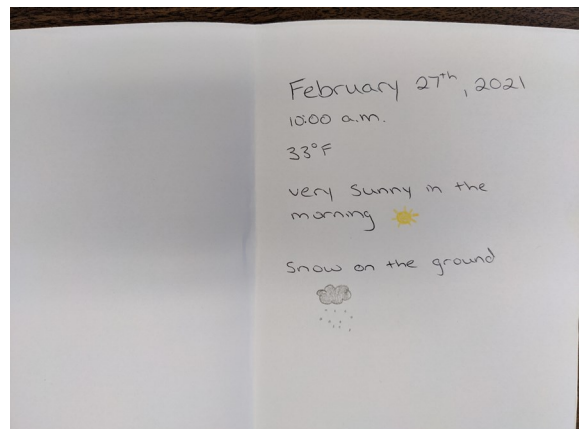 February 27th, 2021
10:00 a.m.
33°F
very sunny in the
morning
Snow on the ground